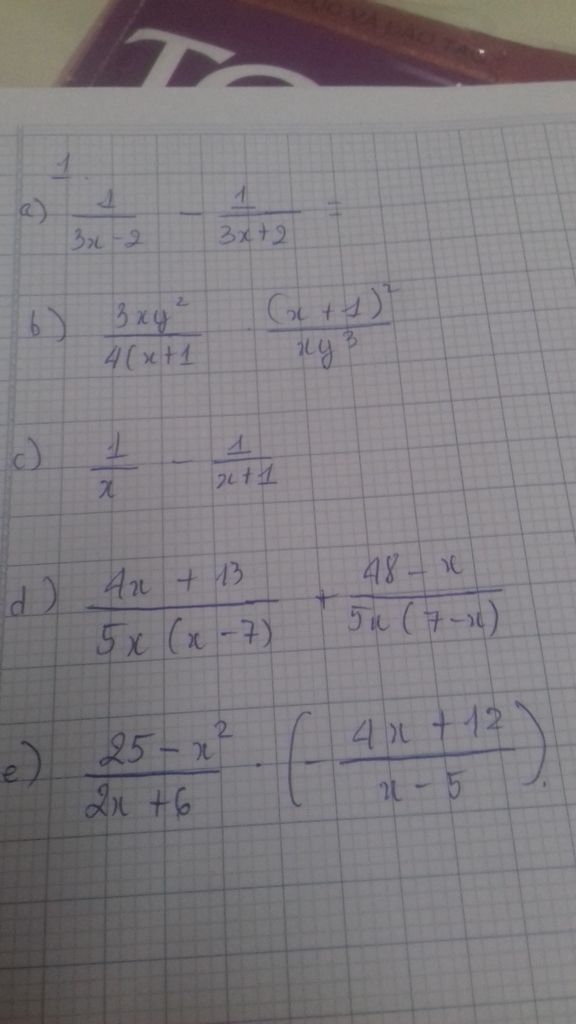 DỤC VÀ ĐÀO TẠO
TO
1.
a) 1/(3x-2) - 1/(3x+2) =
b) 3xy²/4(x+1 · (x+1)²/xy³
c) 1/x - 1/(x+1)
d) (4x + 13)/(5x (x-7)) + (48 - x)/(5x (7-x))
e) (25 - x²)/(2x + 6) · (- (4x + 12)/(x - 5)).